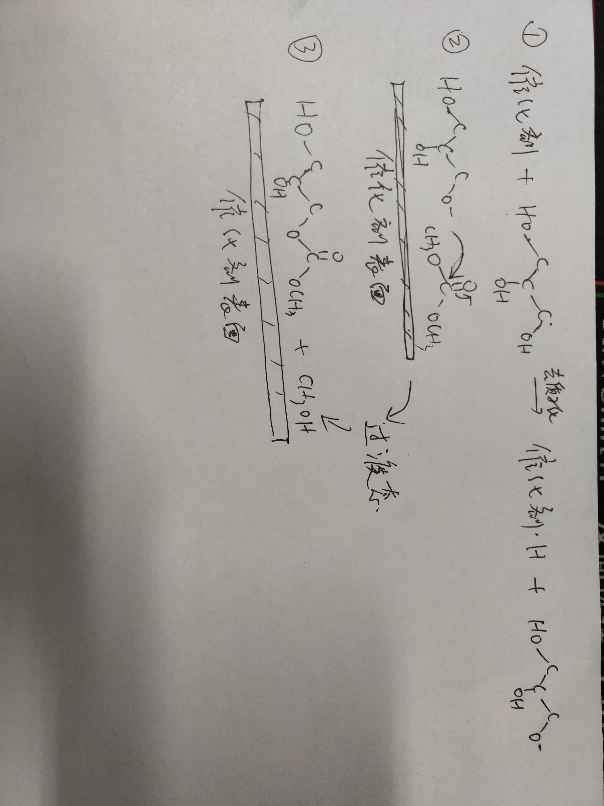 ① 催化剂 + HO-C-C-C-OH 去质子化 → 催化剂·H + HO-C-C-C-O⁻
OH OH
② HO-C-C-C-O⁻ CH₃O-C-OCH₃
OH O
催化剂表面 → 过渡态
③ HO-C-C-C-O-C-OCH₃ + CH₃OH
OH O
催化剂表面